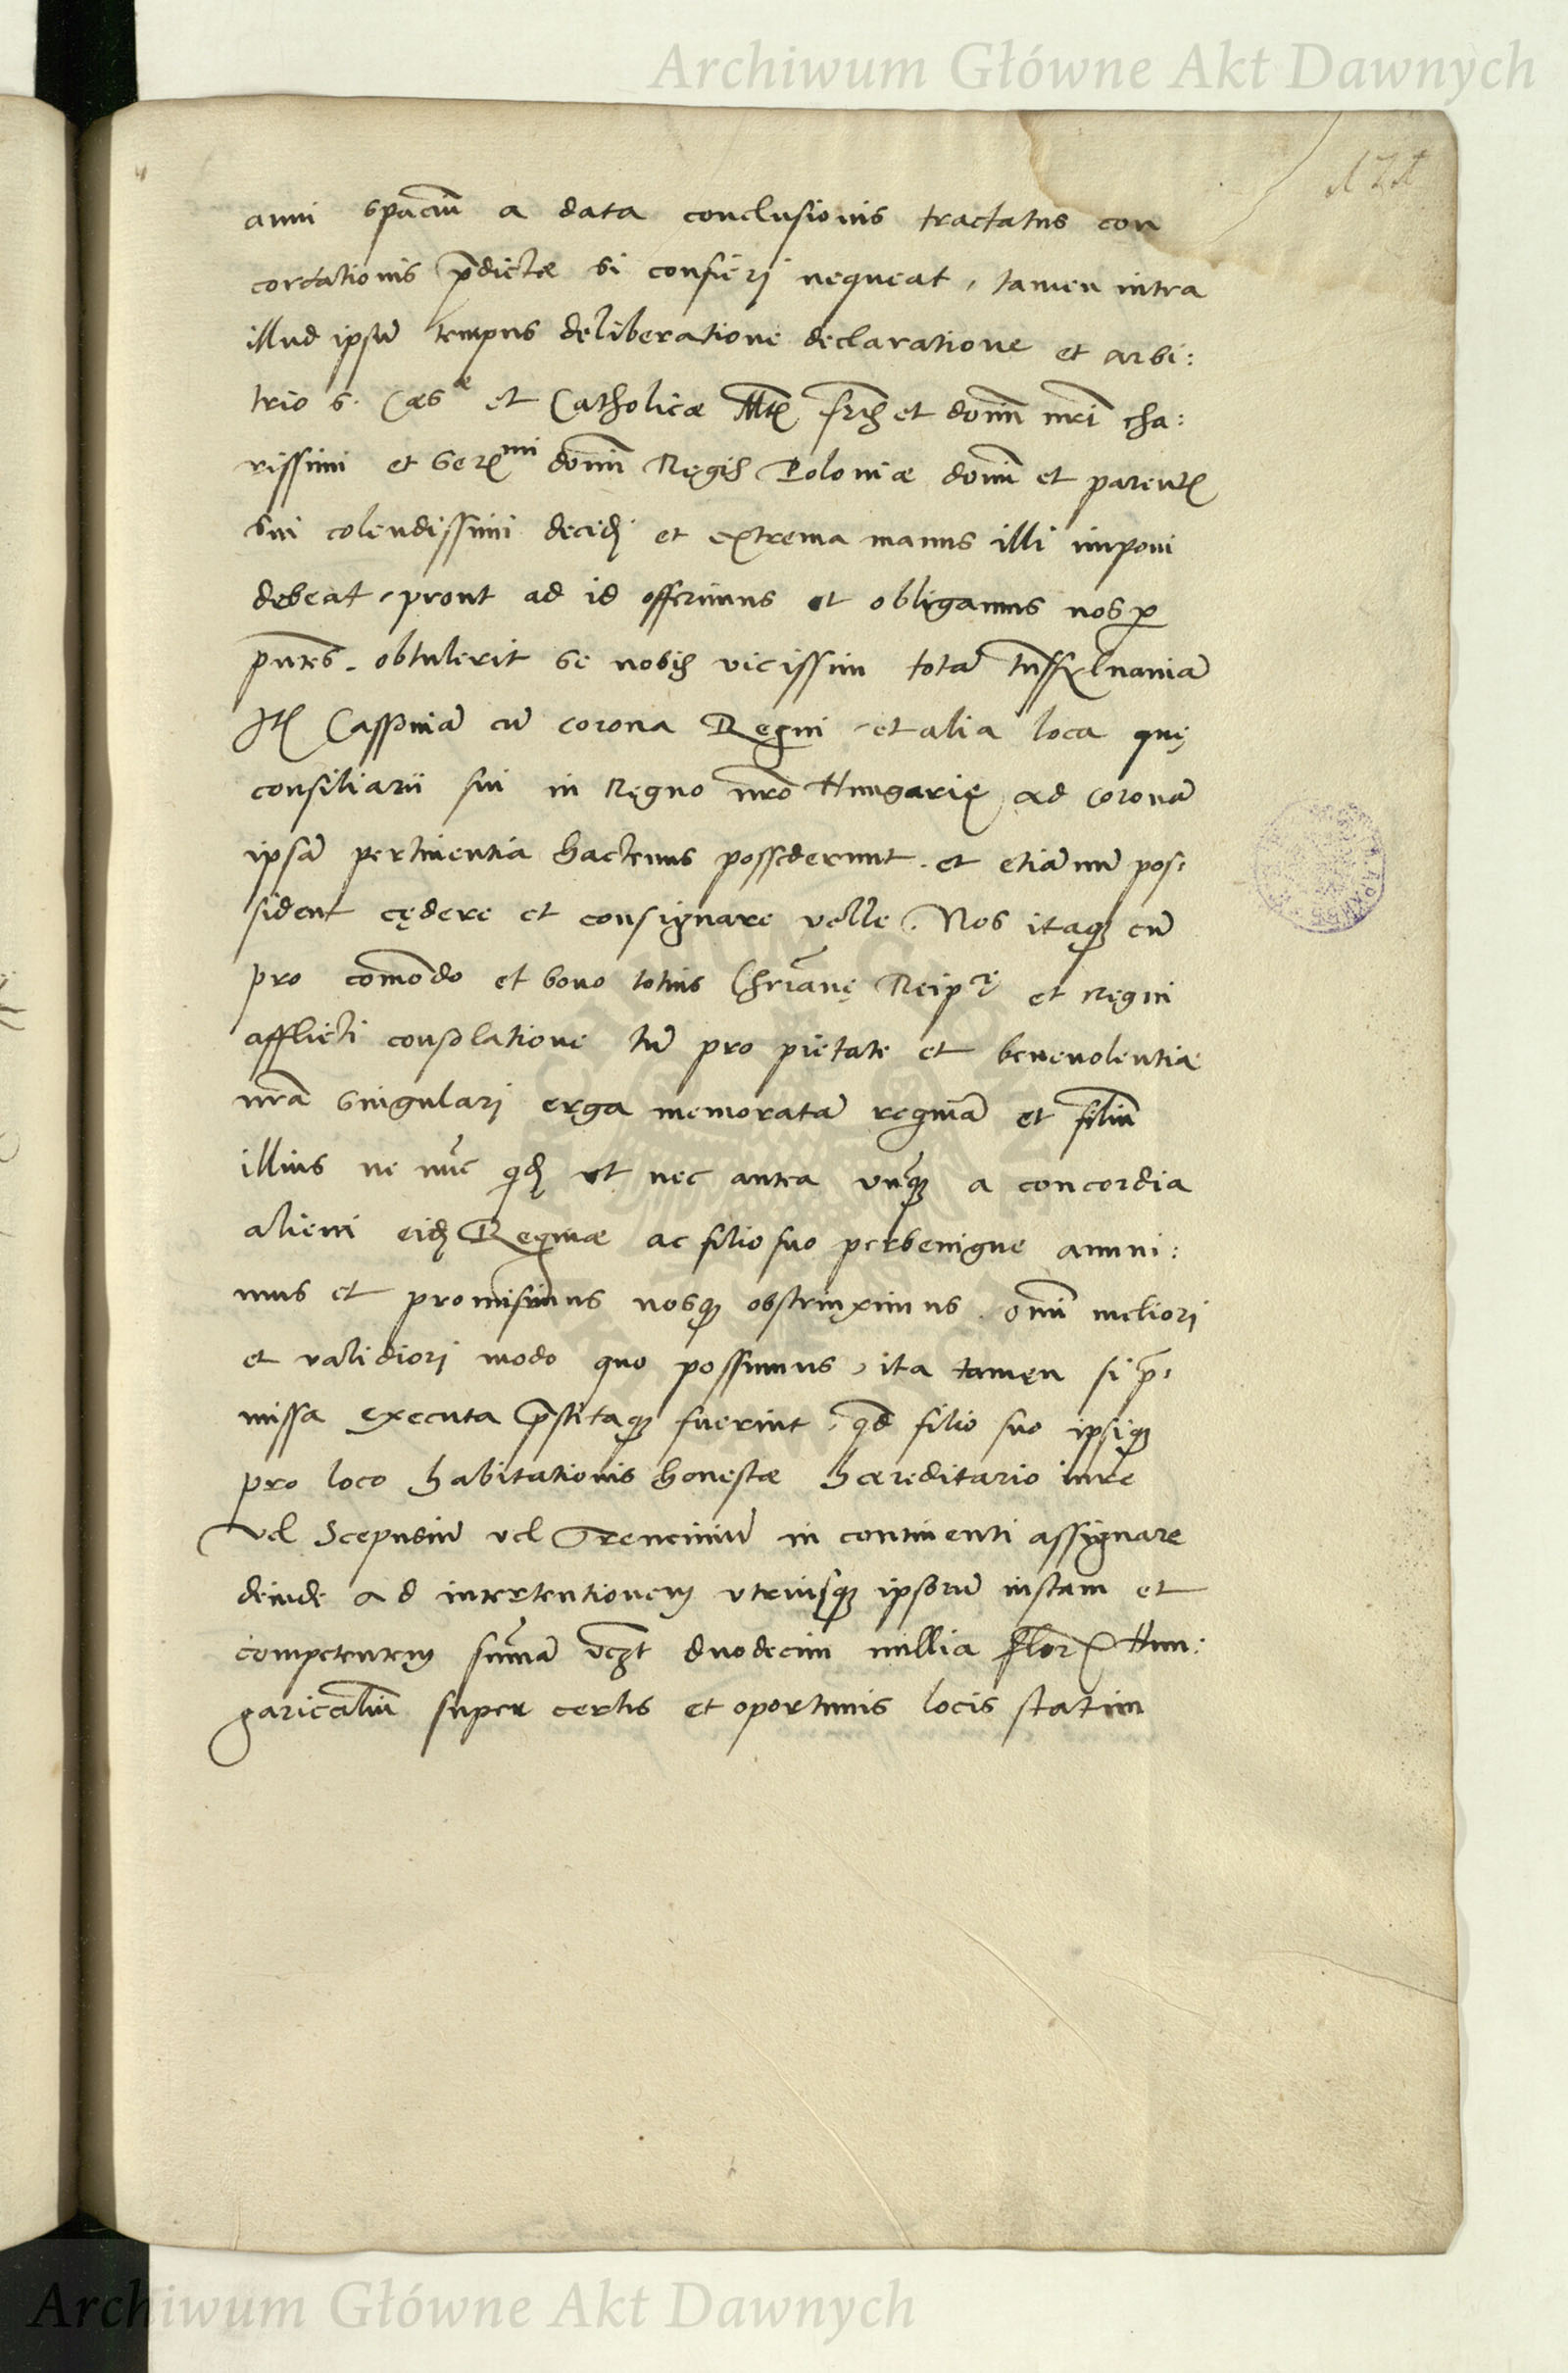 Archiwum Główne Akt Dawnych
171
anni spaciũ a data conclusionis tractatus con
cordationis p̃dictæ si confieri nequeat, tamen intra
illud ipsũ tempus deliberatione declaratione et arbi:
trio S. Cæsᵉ et Catholicæ Mtĩs frĩs et domĩ nrĩ cha:
rissimi et Serᵐⁱ domĩ Regis Poloniæ domĩ et parentĩs
sui colendissimi decidi et extrema manus illi imponi
debeat, prout ad id offerimus et obligamus nos p
pñtes. obtulerit se nobis vicissim totã Trñssyluaniã
Itẽ Cassoviã cũ corona Regni et alia loca quę
consiliarii sui in Regno nrõ Hungarię ad coronã
ipsã pertinentia hactenus possederunt. et etiã nũ pos:
sident cędere et consignare velle. Nos itaq3 cũ
pro comõdo et bono totius Chrĩanę Reipᶜę et Regni
afflicti consolatione tũ pro pietate et benevolentia
nrã singulari erga memoratã reginã et filiũ
illius ne nũc qd ut nec antea unq̃ a concordia
alieni eid Reginæ ac filio suo perbenigne annui:
mus et promisimus nosq3 obstrinximus omĩ meliori
et validiori modo quo possumus, ita tamen si p̃:
missa executa p̃stitaq3 fuerint, qd filio suo ipsiq3
pro loco habitationis honestæ hæreditario iure
vel Scepusiũ vel Trenciniũ in continenti assignare
deinde ad intertentionem utriusq3 ipsorũ iustam et
competentem sum̃ã vcz̃t duodecim millia flor Hun:
garicaliũ super certis et oportunis locis statim
Archiwum Główne Akt Dawnych